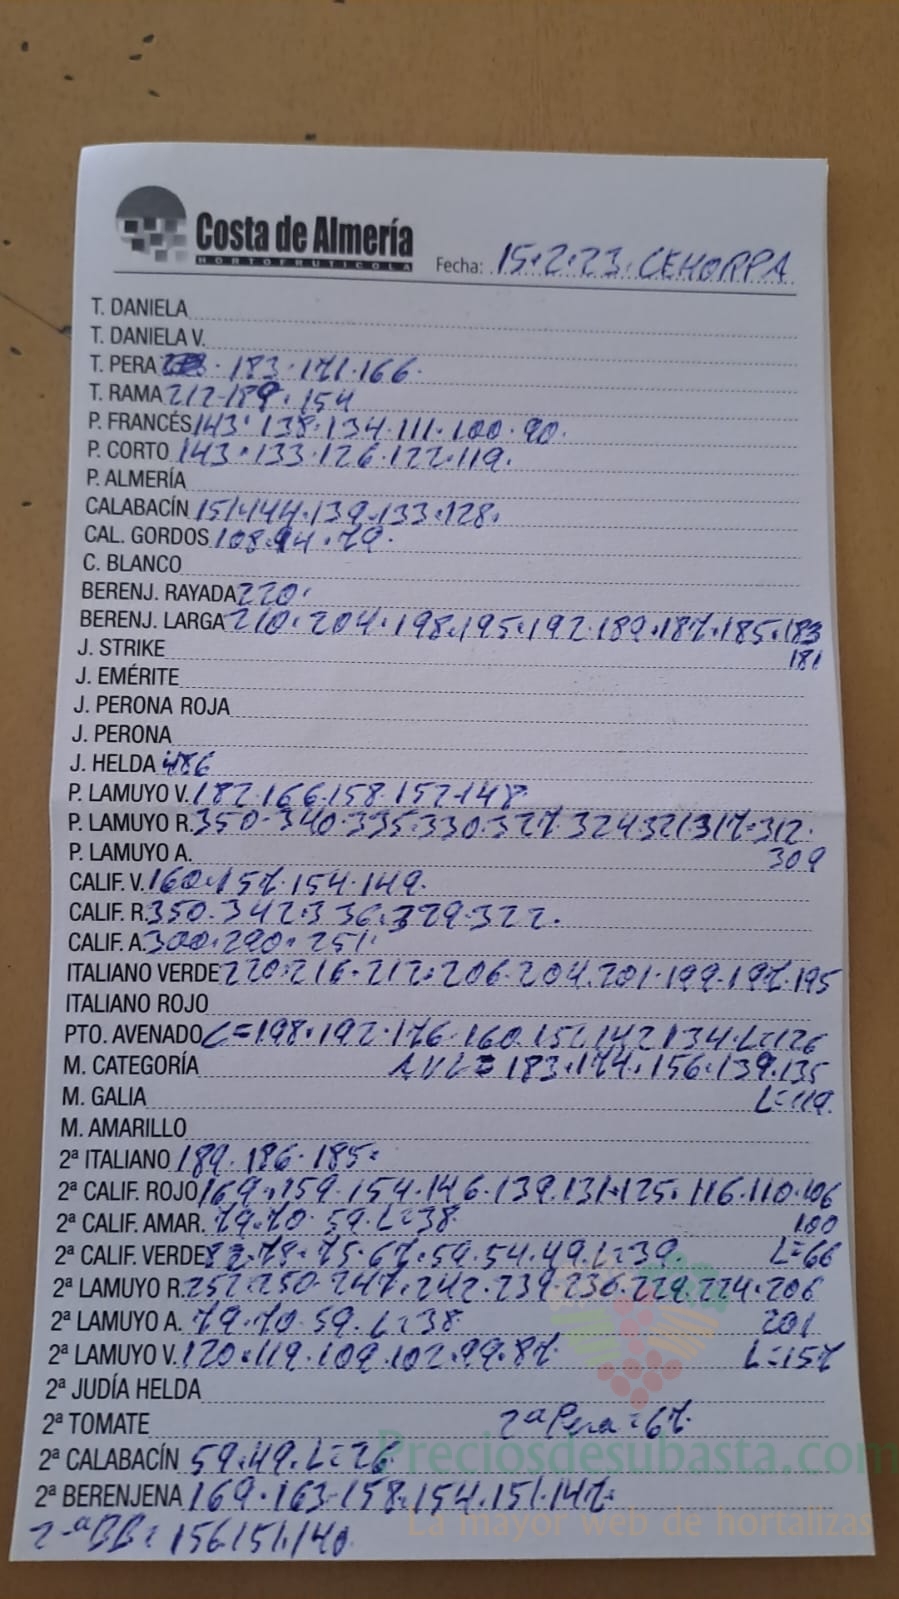 Costa de Almería
HORTOFRUTICOLA
Fecha: 15.2.23. CEHORPA
T. DANIELA
T. DANIELA V.
T. PERA 183.171.166.
T. RAMA 212.189.154
P. FRANCÉS 143.138.134.111.100.90.
P. CORTO 143.133.126.122.119.
P. ALMERÍA
CALABACÍN 151.144.139.133.128.
CAL. GORDOS 108.94.79.
C. BLANCO
BERENJ. RAYADA 220.
BERENJ. LARGA 210.204.198.195.192.189.187.185.183
J. STRIKE 181
J. EMÉRITE
J. PERONA ROJA
J. PERONA
J. HELDA 486
P. LAMUYO V. 182.166.158.152.148
P. LAMUYO R. 350.340.335.330.327.324.321.317.312.
P. LAMUYO A. 309
CALIF. V. 160.157.154.149.
CALIF. R. 350.342.336.329.322.
CALIF. A. 300.290.251.
ITALIANO VERDE 220.216.212.206.204.201.199.197.195
ITALIANO ROJO
PTO. AVENADO C=198.192.176.160.151.142.134.L=126
M. CATEGORÍA 183.174.156.139.135
M. GALIA L=119.
M. AMARILLO
2ª ITALIANO 189.186.185.
2ª CALIF. ROJO 169.159.154.146.139.131.125.116.110.106
2ª CALIF. AMAR. 79.70.59.L=38 100
2ª CALIF. VERDE 83.78.75.67.59.54.49.L=39 L=66
2ª LAMUYO R. 252.250.247.242.239.236.229.224.206
2ª LAMUYO A. 79.70.59.L=38 201
2ª LAMUYO V. 120.119.109.102.99.87. L=157
2ª JUDÍA HELDA
2ª TOMATE 2ª Pera=67.
2ª CALABACÍN 59.49.L=26
Preciosdesubasta.com
2ª BERENJENA 169.163.158.154.151.147.
La mayor web de hortalizas
2ªBB=156.151.140.